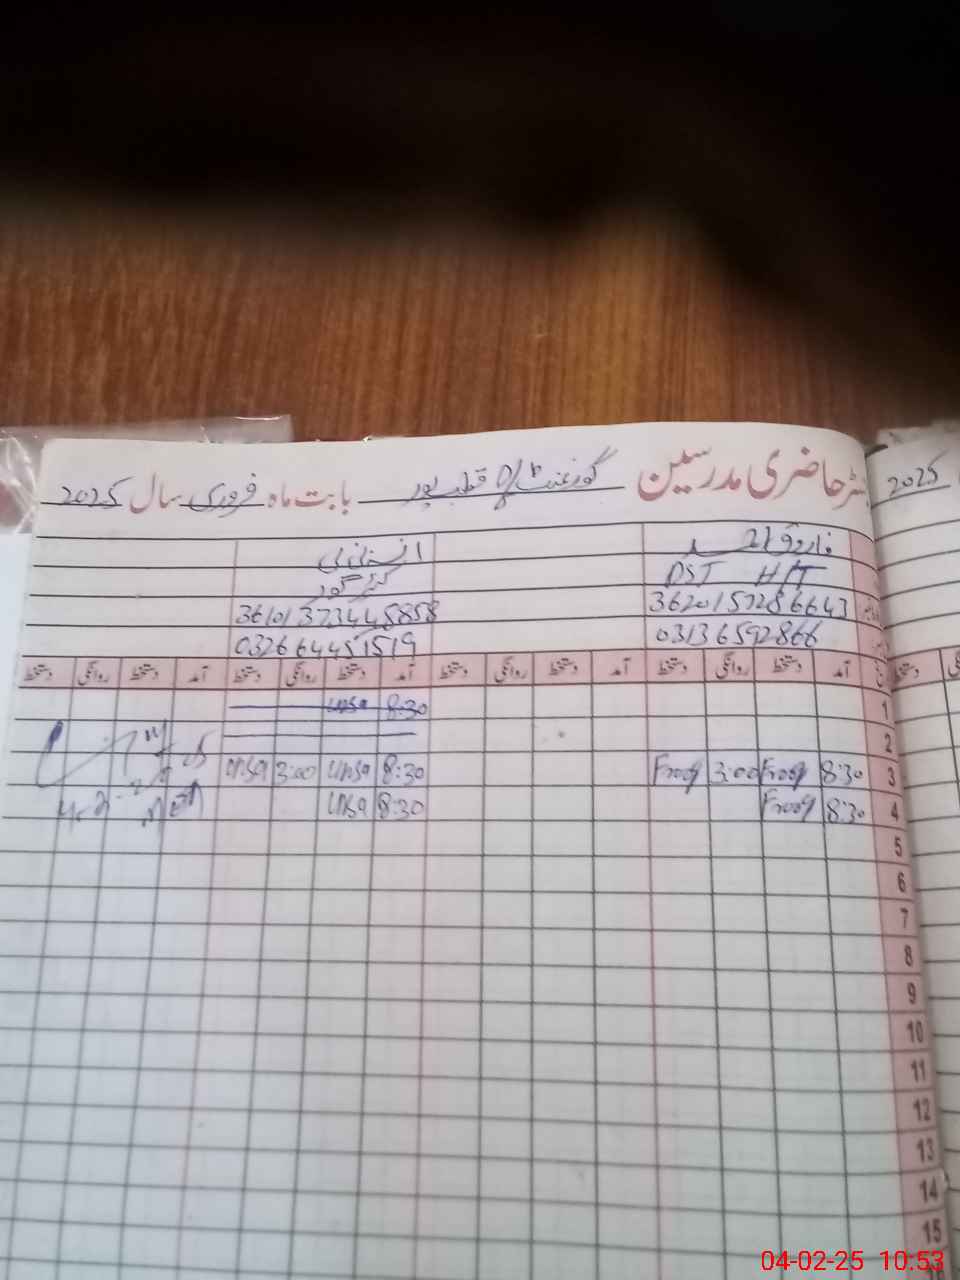 رجسٹر حاضری مدرسین گورنمنٹ قطب پور بابت ماہ فروری سال 2025
2025
فاروق احمد
PST H/T
3620157286643 36101373445858
03136592866 032664451519
آمد دستخط روانگی دستخط آمد دستخط روانگی دستخط آمد دستخط روانگی دستخط آمد دستخط روانگی دستخط
1 8:30 Unsa
2
3 8:30 Frooq 3:00 Frooq 8:30 Unsa 3:00 Unsa
4 8:30 Frooq 8:30 Unsa
5
6
7
8
9
10
11
12
13
14
15
04-02-25 10:53